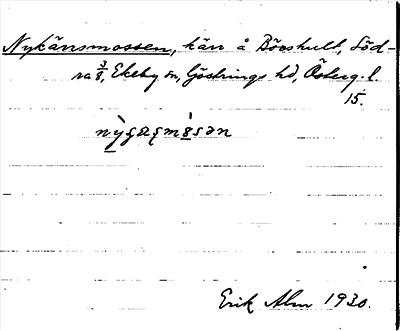 Nykärrsmossen, kärr å Böoshult, Söd-
ra 3/8, Ekeby sn, Göstrings hd, Österg. l.
15.
Erik Alm 1930.